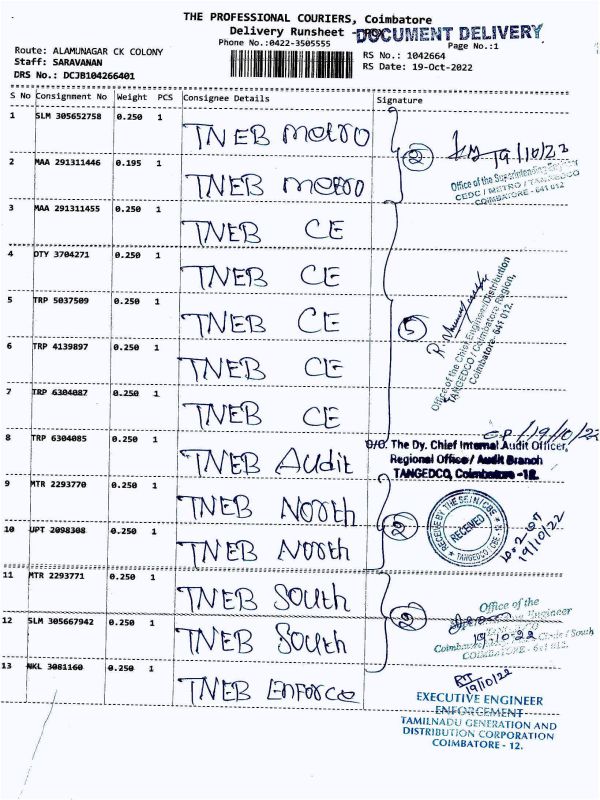 THE PROFESSIONAL COURIERS, Coimbatore
Delivery Runsheet - PRO
DOCUMENT DELIVERY
Phone No.:0422-3505555
Page No.:1
Route: ALAMUNAGAR CK COLONY
RS No.: 1042664
Staff: SARAVANAN
RS Date: 19-Oct-2022
DRS No.: DCJB104266401
S No Consignment No Weight PCS Consignee Details Signature
1 SLM 305652758 0.250 1 TNEB METRO
2 MAA 291311446 0.195 1 TNEB METRO
2
19/10/22
Office of the Superintending Engineer
CEDC / METRO / TANGEDCO
COIMBATORE - 641 012
3 MAA 291311455 0.250 1 TNEB CE
4 DTY 3704271 0.250 1 TNEB CE
5 TRP 5037509 0.250 1 TNEB CE
6 TRP 4139897 0.250 1 TNEB CE
7 TRP 6304087 0.250 1 TNEB CE
5
Office of the Chief Engineer/Distribution
TANGEDCO / Coimbatore Region,
Coimbatore- 641 012.
8 TRP 6304085 0.250 1 TNEB AUDit
19/10/22
O/O. The Dy. Chief Internal Audit Officer,
Regional Office/ Audit Branch
TANGEDCO, Coimbatore -12.
9 MTR 2293770 0.250 1 TNEB NORth
10 UPT 2098308 0.250 1 TNEB NORth
RECEIVED
19/10/22
11 MTR 2293771 0.250 1 TNEB SOUth
12 SLM 305667942 0.250 1 TNEB SOUth
Office of the
Engineer
19.10.22
South
COIMBATORE - 641 012.
13 NKL 3081160 0.250 1 TNEB ENFORCE
19/10/22
EXECUTIVE ENGINEER
ENFORCEMENT
TAMILNADU GENERATION AND
DISTRIBUTION CORPORATION
COIMBATORE - 12.